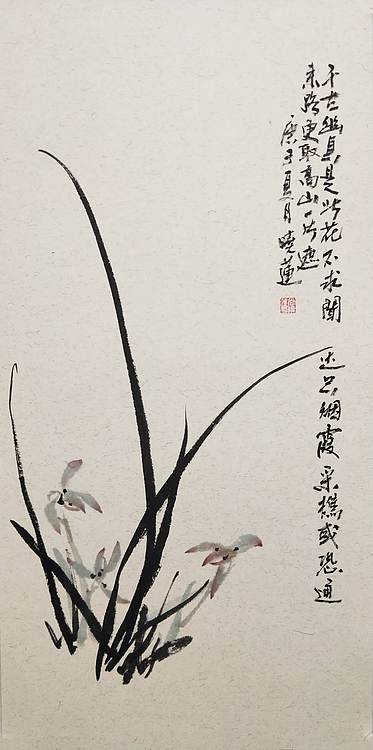 千古幽貞是此花不求聞达只烟霞采樵或恐通
来路更取高山一片遮
庚子夏月曉蓮